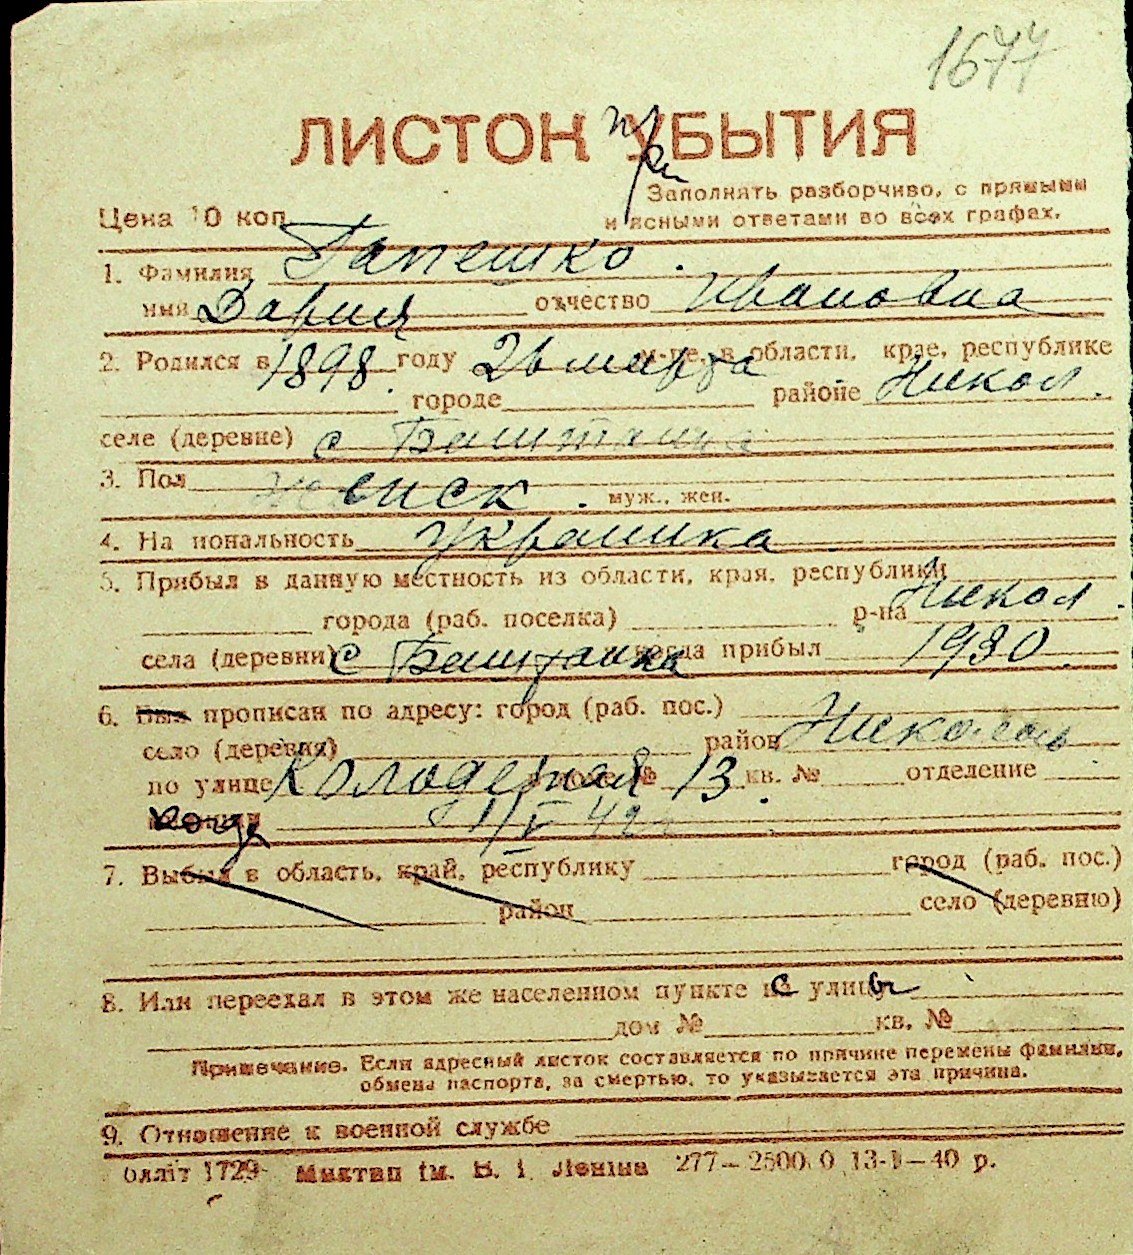 1677
ЛИСТОК УБЫТИЯ
при
Заполнять разборчиво, с прямыми
Цена 10 коп. и ясными ответами во всех графах.
1. Фамилия Гапешко.
имя Дария отчество Ивановна
2. Родился в 1898 году 26 марта м-це, в области, крае, республике
городе районе Никол.
селе (деревне) с Баштанка
3. Пол женск. муж., жен.
4. Национальность Украинка
5. Прибыл в данную местность из области, края, республики
города (раб. поселка) р-на Никол.
села (деревни) с Баштанка когда прибыл 1930.
6. Был прописан по адресу: город (раб. пос.)
село (деревня) район Николаевь
по улице Колодезная доме № 13. кв. № отделение
когда 1/V 42
7. Выбыл в область, край, республику город (раб. пос.)
район село (деревню)
8. Или переехал в этом же населенном пункте с улицы
дом № кв. №
Примечание. Если адресный листок составляется по причине перемены фамилии,
обмена паспорта, за смертью, то указывается эта причина.
9. Отношение к военной службе
Оплліт 1729 Миктип ім. В. І. Леніна 277—25000 13-I—40 р.